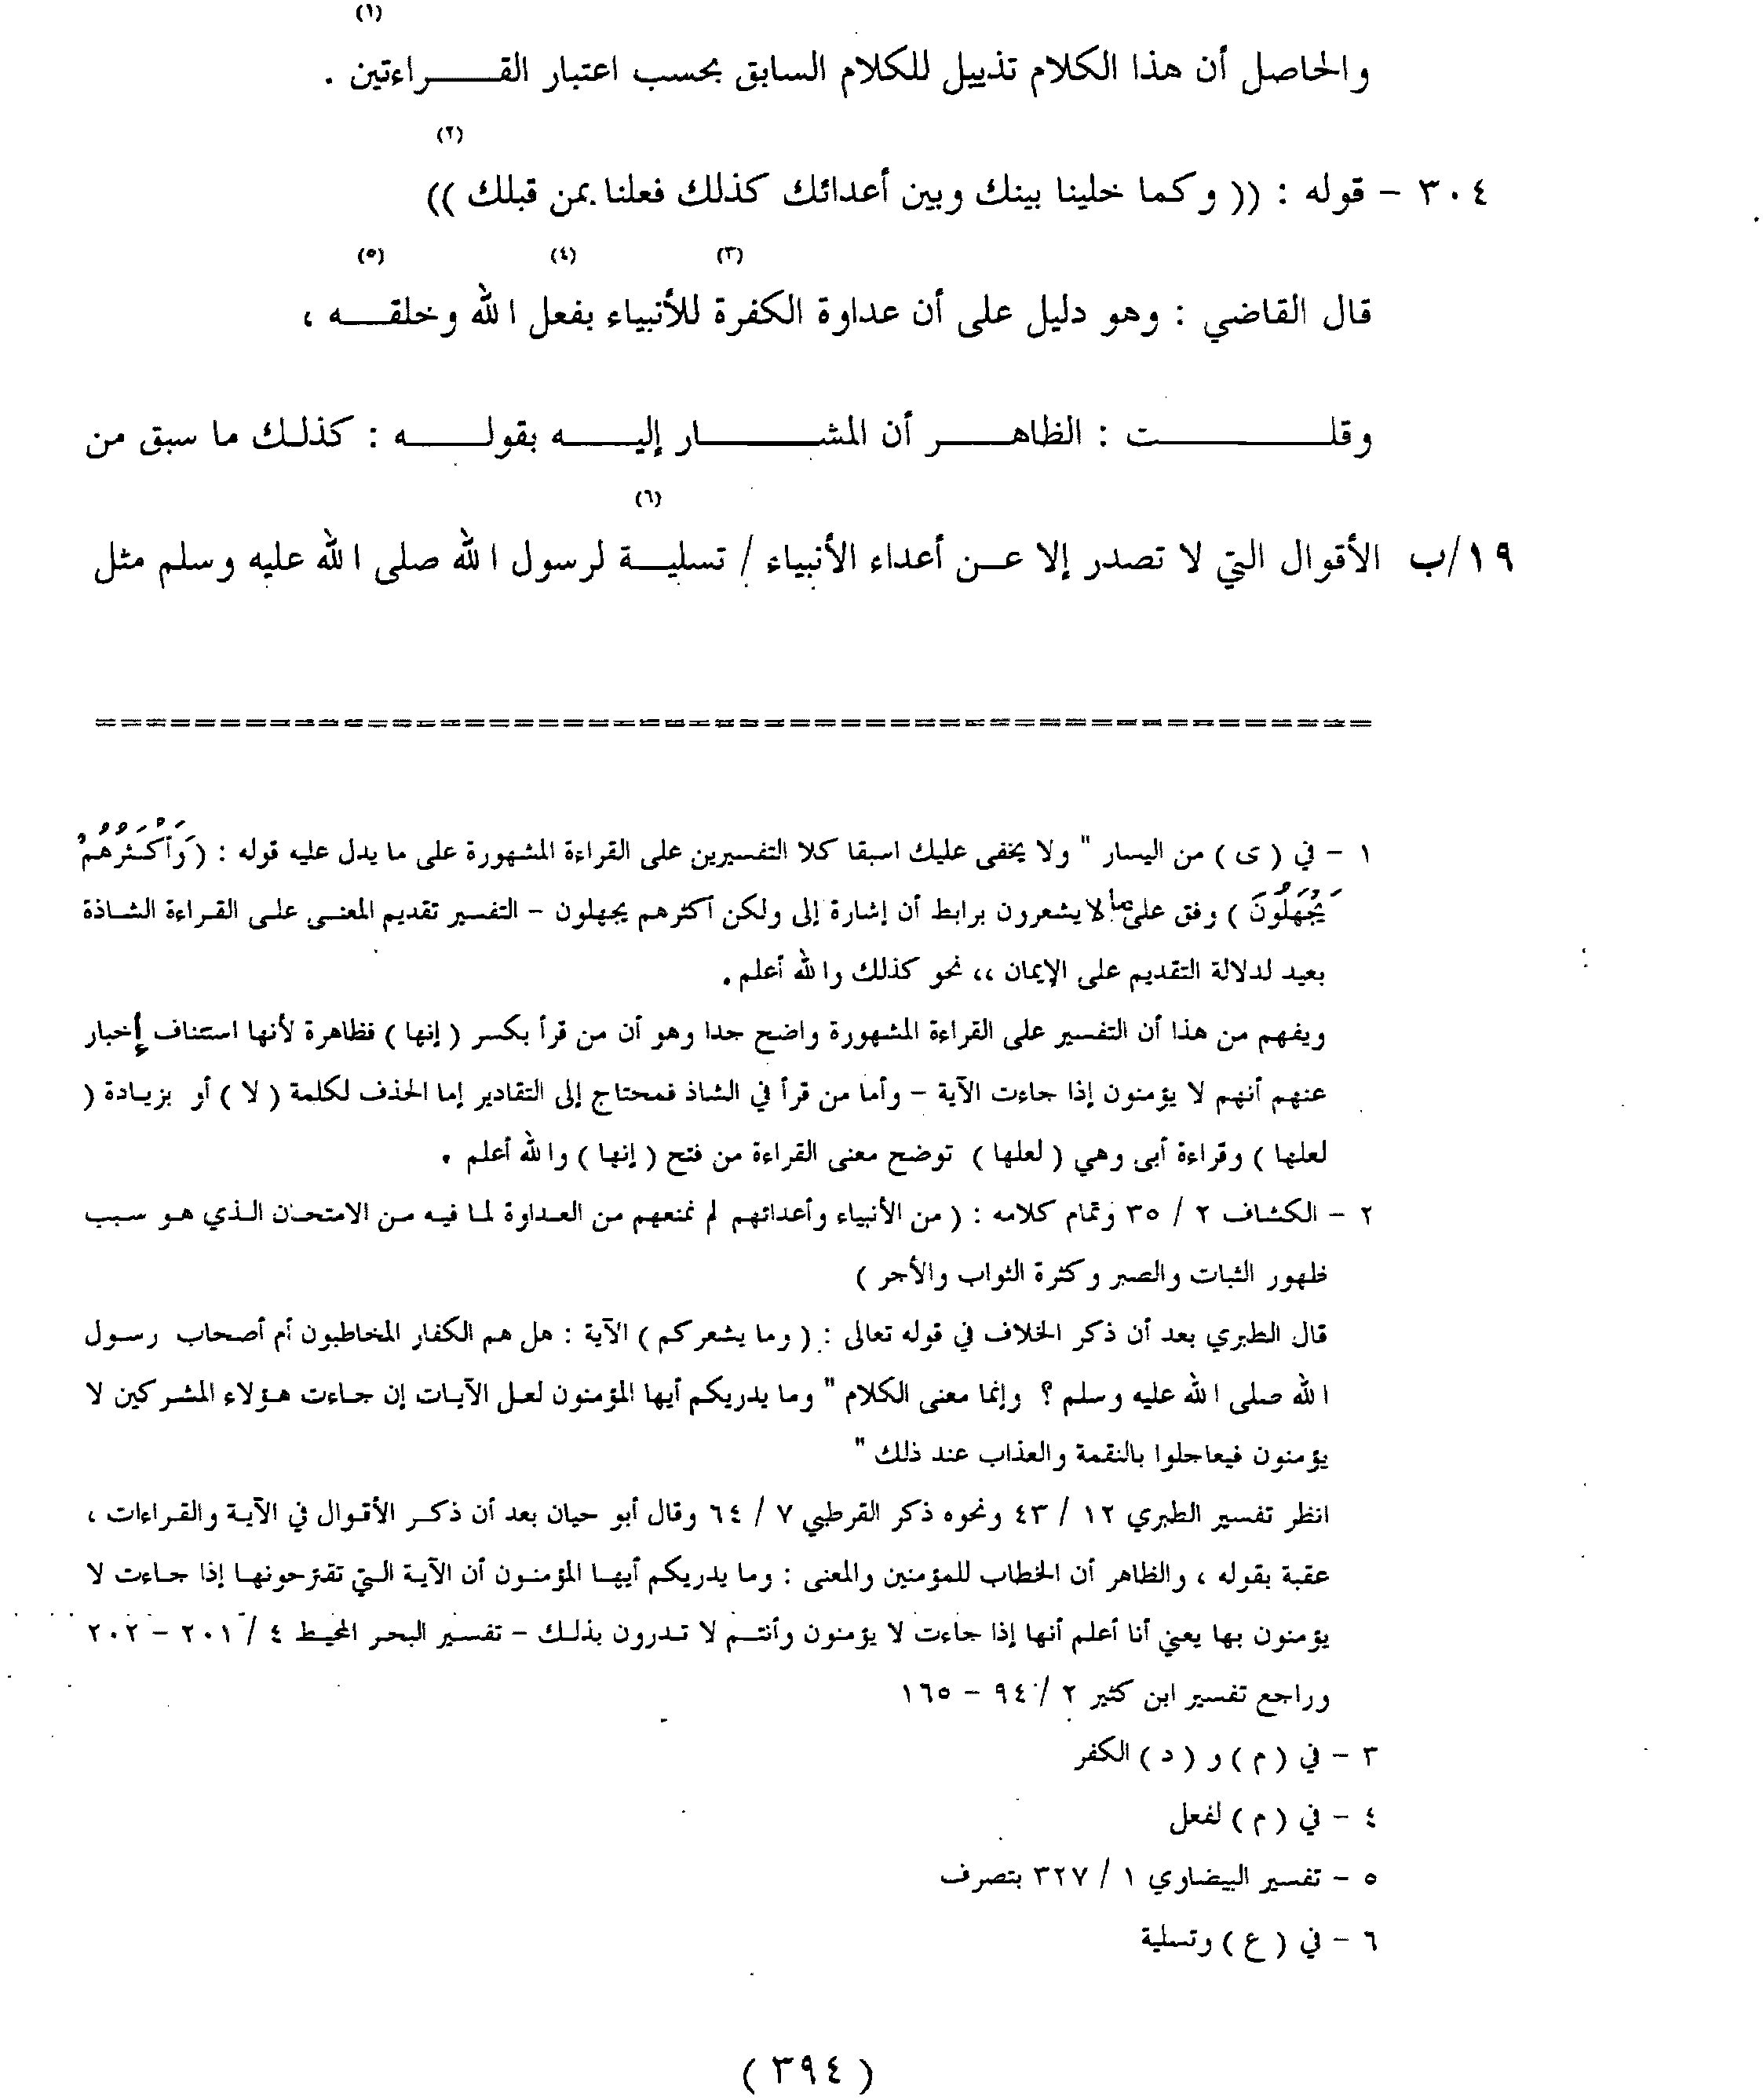 (١)
والحاصل أن هذا الكلام تذييل للكلام السابق بحسب اعتبار القــــراءتين .
(٢)
٣٠٤ - قوله : (( وكما خلينا بينك وبين أعدائك كذلك فعلنا بمن قبلك ))
(٣) (٤) (٥)
قال القاضي : وهو دليل على أن عداوة الكفرة للأنبياء بفعل الله وخلقـــه ،
وقلـــــــــت : الظاهــــر أن المشـــــار إليــــه بقولــــه : كذلك ما سبق من
(٦)
١٩/ب الأقوال التي لا تصدر إلا عــن أعداء الأنبياء / تسليــة لرسول الله صلى الله عليه وسلم مثل
====================================================
١ - في ( ى ) من اليسار " ولا يخفى عليك اسبقا كلا التفسيرين على القراءة المشهورة على ما يدل عليه قوله : ( وَأَكْثَرُهُمْ
يَجْهَلُونَ ) وفق على ما لا يشعرون برابط أن إشارة إلى ولكن أكثرهم يجهلون - التفسير تقديم المعنى على القراءة الشاذة
بعيد لدلالة التقديم على الإيمان ،، نحو كذلك والله أعلم .
ويفهم من هذا أن التفسير على القراءة المشهورة واضح جدا وهو أن من قرأ بكسر ( إنها ) فظاهرة لأنها استئناف إخبار
عنهم أنهم لا يؤمنون إذا جاءت الآية - وأما من قرأ في الشاذ فمحتاج إلى التقادير إما الحذف لكلمة ( لا ) أو بزيادة (
لعلها ) وقراءة أبى وهي ( لعلها ) توضح معنى القراءة من فتح ( إنها ) والله أعلم .
٢ - الكشاف ٢ / ٣٥ وتمام كلامه : ( من الأنبياء وأعدائهم لم نمنعهم من العداوة لما فيه من الامتحان الذي هو سبب
ظهور الثبات والصبر وكثرة الثواب والأجر )
قال الطبري بعد أن ذكر الخلاف في قوله تعالى : ( وما يشعركم ) الآية : هل هم الكفار المخاطبون أم أصحاب رسول
الله صلى الله عليه وسلم ؟ وإنما معنى الكلام " وما يدريكم أيها المؤمنون لعل الآيات إن جاءت هؤلاء المشركين لا
يؤمنون فيعاجلوا بالنقمة والعذاب عند ذلك "
انظر تفسير الطبري ١٢ / ٤٣ ونحوه ذكر القرطبي ٧ / ٦٤ وقال أبو حيان بعد أن ذكر الأقوال في الآية والقراءات ،
عقبة بقوله ، والظاهر أن الخطاب للمؤمنين والمعنى : وما يدريكم أيها المؤمنون أن الآية التي تقترحونها إذا جاءت لا
يؤمنون بها يعني أنا أعلم أنها إذا جاءت لا يؤمنون وأنتم لا تدرون بذلك - تفسير البحر المحيط ٤ / ٢٠١ - ٢٠٢
وراجع تفسير ابن كثير ٢ / ٩٤ - ١٦٥
٣ - في ( م ) و ( د ) الكفر
٤ - في ( م ) لفعل
٥ - تفسير البيضاوي ١ / ٣٢٧ بتصرف
٦ - في ( ع ) وتسلية
( ٣٩٤ )